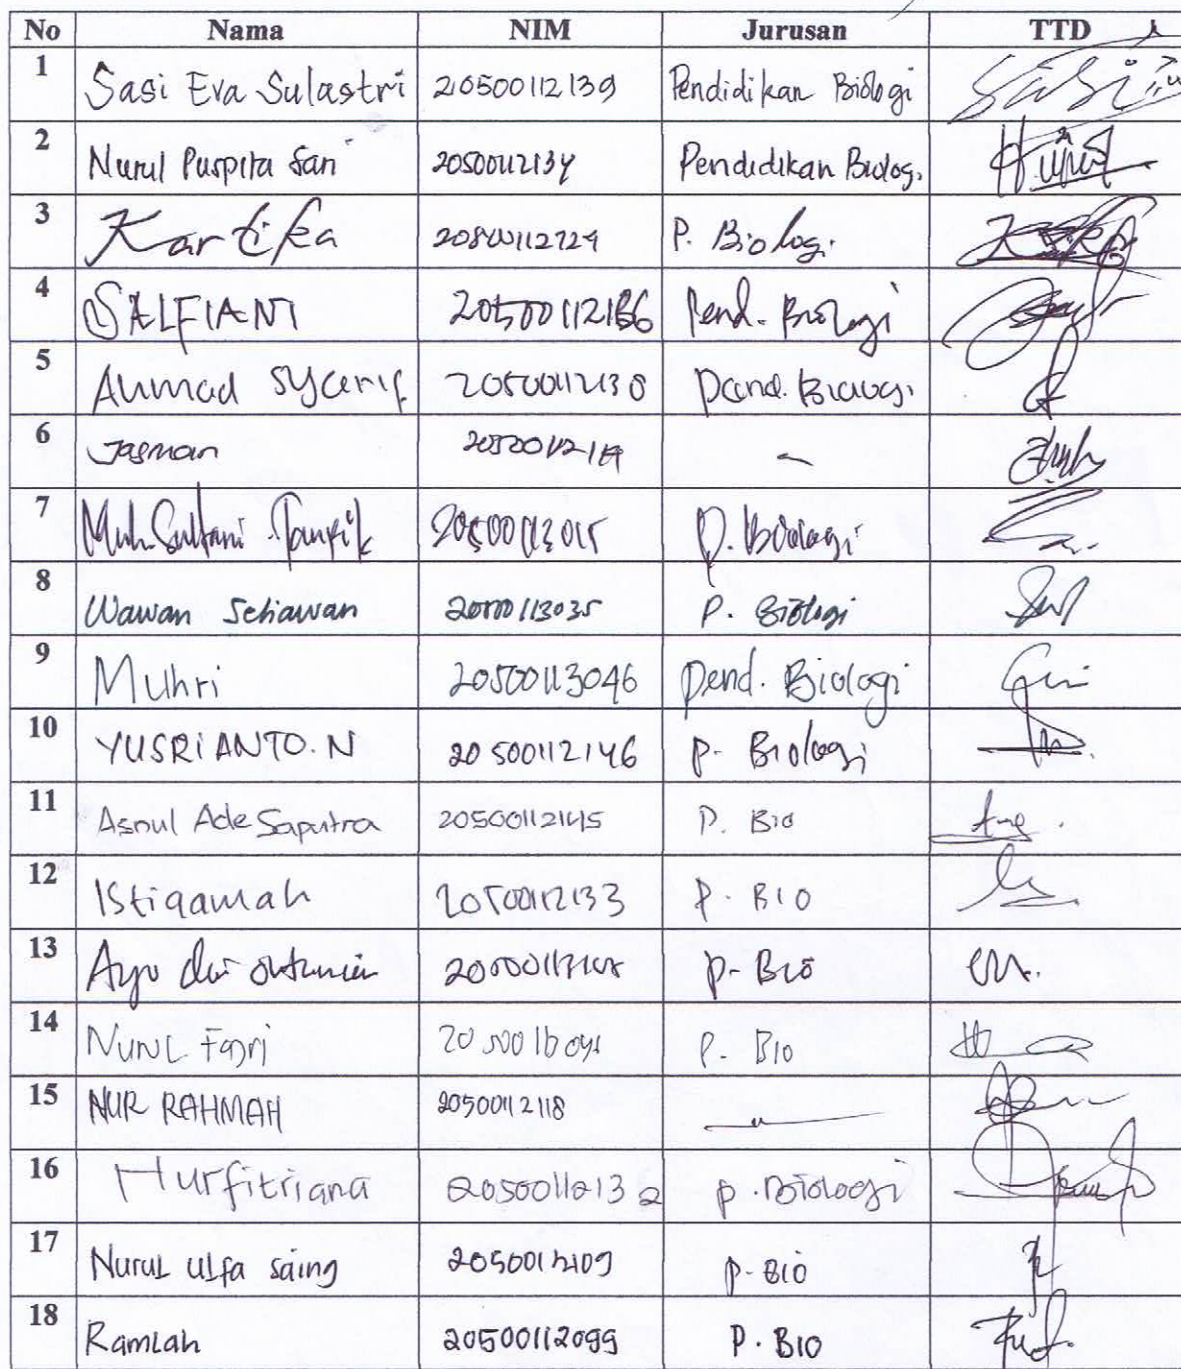 No Nama NIM Jurusan TTD
1 Sasi Eva Sulastri 20500112139 Pendidikan Biologi
2 Nurul Puspita Sari 20500112134 Pendidikan Biologi
3 Kartika P. Biologi
4 SALFIANI Pend. Biologi
5 Ahmad Syarif 20500112130 Pend. Biologi
6 Jasman -
7 Muh. Sultani Taufik 20500113015 P. Biologi
8 Wawan Setiawan 20500113035 P. Biologi
9 Muhri 20500113046 Pend. Biologi
10 YUSRIANTO. N 20500112146 P. Biologi
11 Asnul Ade Saputra 20500112145 P. Bio
12 Istiqamah 20500112133 P. BIO
13 Ayu P-Bio
14 Nurul Fajri P. Bio
15 NUR RAHMAH 20500112118 "
16 Nurfitriana 20500112132 P. Biologi
17 NuruL ULfa saing 20500112109 P-BIO
18 RamLah 20500112099 P. BIO